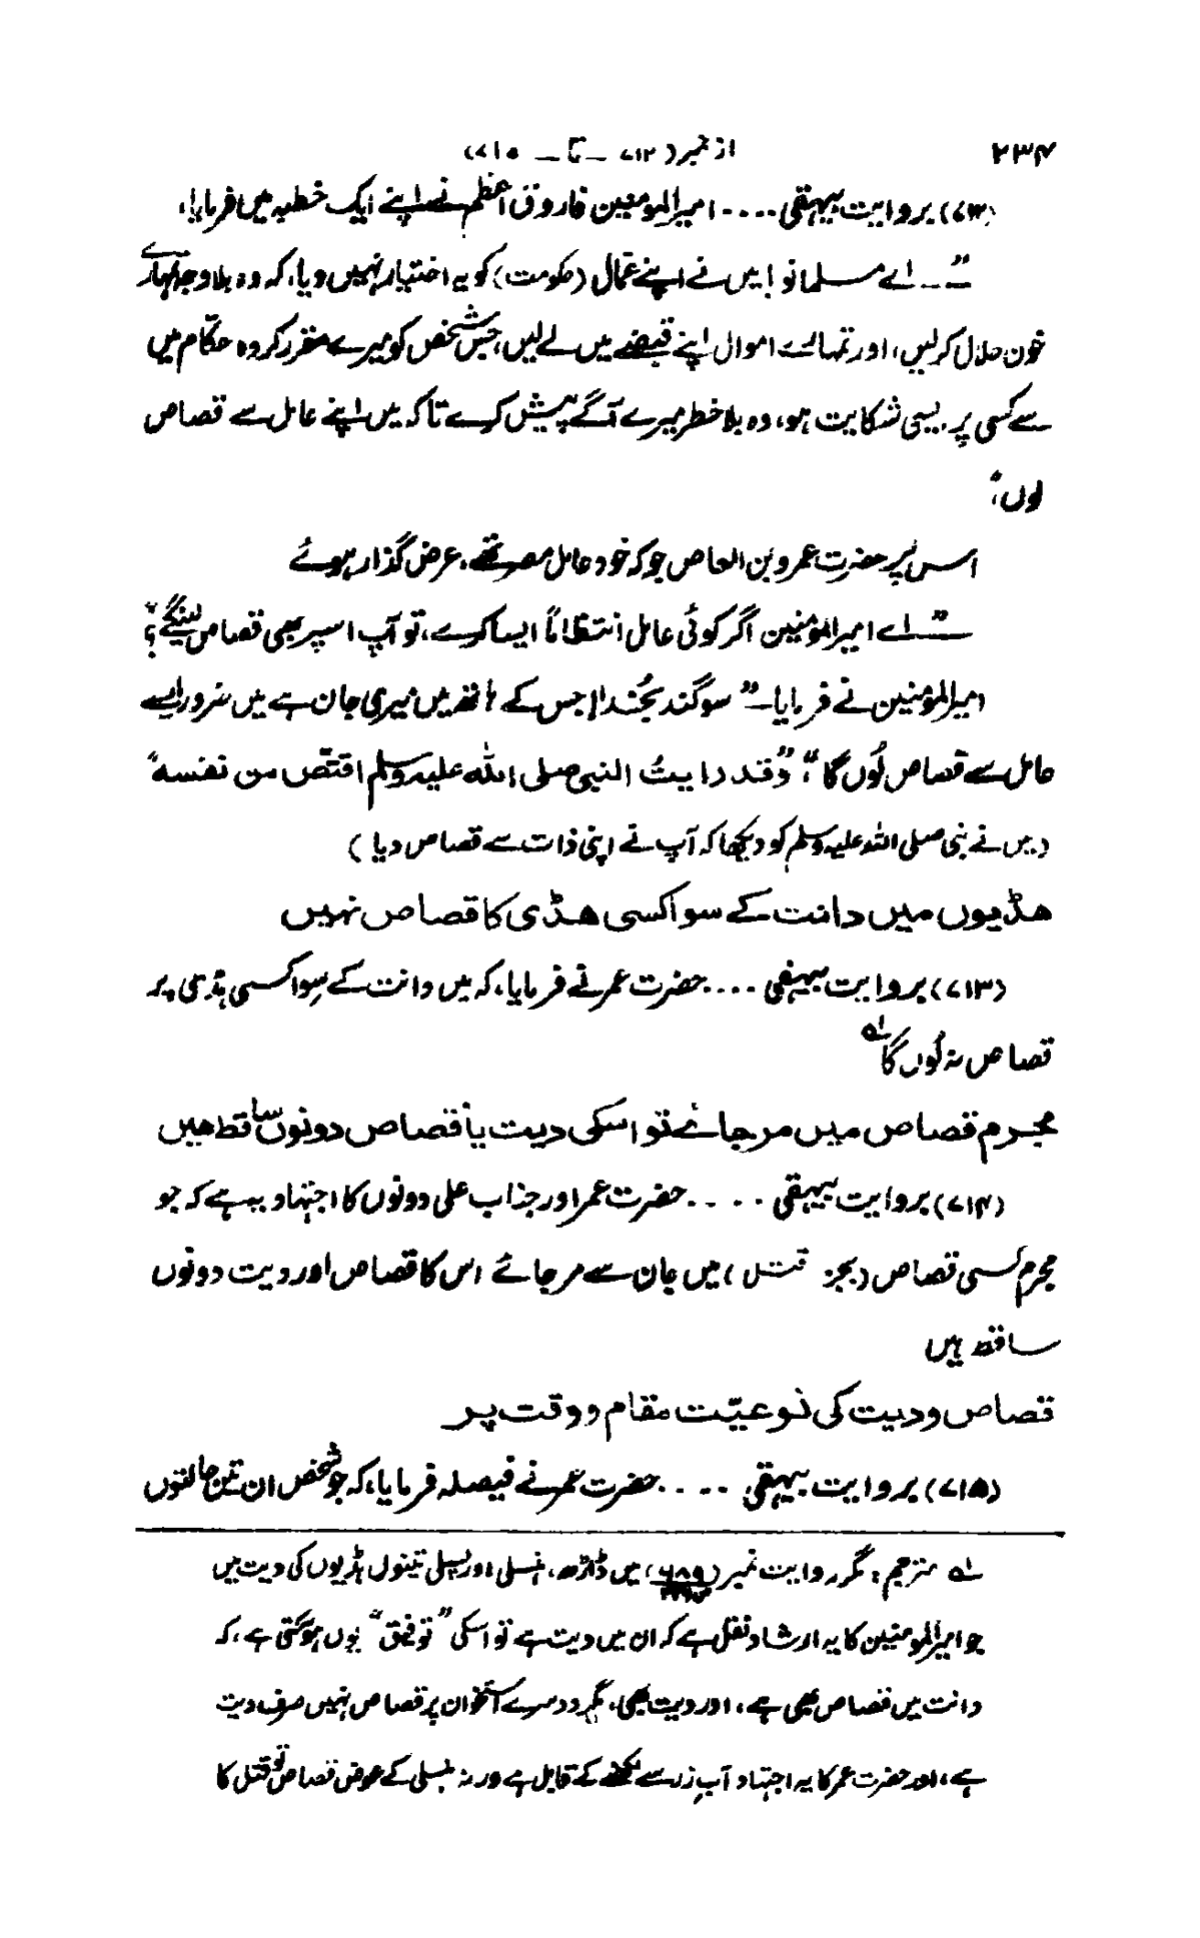 ۲۳۴
از نمبر (۷۱۲ – تا – ۷۱۵)
(۷۱۲) بروایت بیہقی .... امیرالمومنین فاروق اعظم نے اپنے ایک خطبہ میں فرمایا،
”— اے مسلمانو! میں نے اپنے عمال (حکومت) کو یہ اختیار نہیں دیا، کہ وہ بلا وجہ تمہارے
خون حلال کرلیں، اور تمہارے اموال اپنے قبضے میں لے لیں، جس شخص کو میرے مقرر کردہ حکّام میں
سے کسی پر ایسی شکایت ہو، وہ بلا خطر میرے آگے پیش کرے تاکہ میں اپنے عامل سے قصاص
لوں“،
اس پر حضرت عمرو بن العاص جو کہ خود عامل مصر تھے، عرض گذار ہوئے
”— اے امیر المؤمنین اگر کوئی عامل انتظاماً ایسا کرے، تو آپ اسپر بھی قصاص لینگے؟“
امیر المؤمنین نے فرمایا — ”سوگند بخُدا! جس کے ہاتھ میں میری جان ہے میں ضرور ایسے
عامل سے قصاص لُوں گا“؛ ”وقد رایتُ النبی صلی اللہ علیہ وسلم اقتصّ من نفسہ“
(میں نے نبی صلی اللہ علیہ وسلم کو دیکھا کہ آپ نے اپنی ذات سے قصاص دیا)
ھڈیوں میں دانت کے سوا کسی ھڈی کا قصاص نہیں
(۷۱۳) بروایت بیہقی .... حضرت عمر نے فرمایا، کہ میں دانت کے سِوا کسی ہڈی پر
قصاص نہ لُوں گا ؎۱
مجرم قصاص میں مرجائے تو اسکی دیت یا قصاص دونوں ساقط ھیں
(۷۱۴) بروایت بیہقی .... حضرت عمر اور جناب علی دونوں کا اجتہاد یہ ہے کہ جو
مجرم کسی قصاص (بجز قتل) میں جان سے مرجائے اس کا قصاص اور دیت دونوں
ساقط ہیں
قصاص و دیت کی نوعیّت مقام و وقت پر
(۷۱۵) بروایت بیہقی .... حضرت عمر نے فیصلہ فرمایا، کہ جو شخص ان تین حالتوں
؎۱ مترجم: مگر روایت نمبر (۶۸۹) میں ڈاڑھ، ہنسلی اور پسلی تینوں ہڈیوں کی دیت میں
جو امیر المومنین کا یہ ارشاد نقل ہے کہ ان میں دیت ہے تو اسکی ”توفیق“ یوں ہوگئی ہے، کہ
دانت میں قصاص بھی ہے، اور دیت بھی، مگر دوسرے استخوان پر قصاص نہیں صرف دیت
ہے، اور حضرت عمر کا یہ اجتہاد آبِ زر سے لکھنے کے قابل ہے ورنہ ہنسلی کے عوض قصاص تو قتل کا